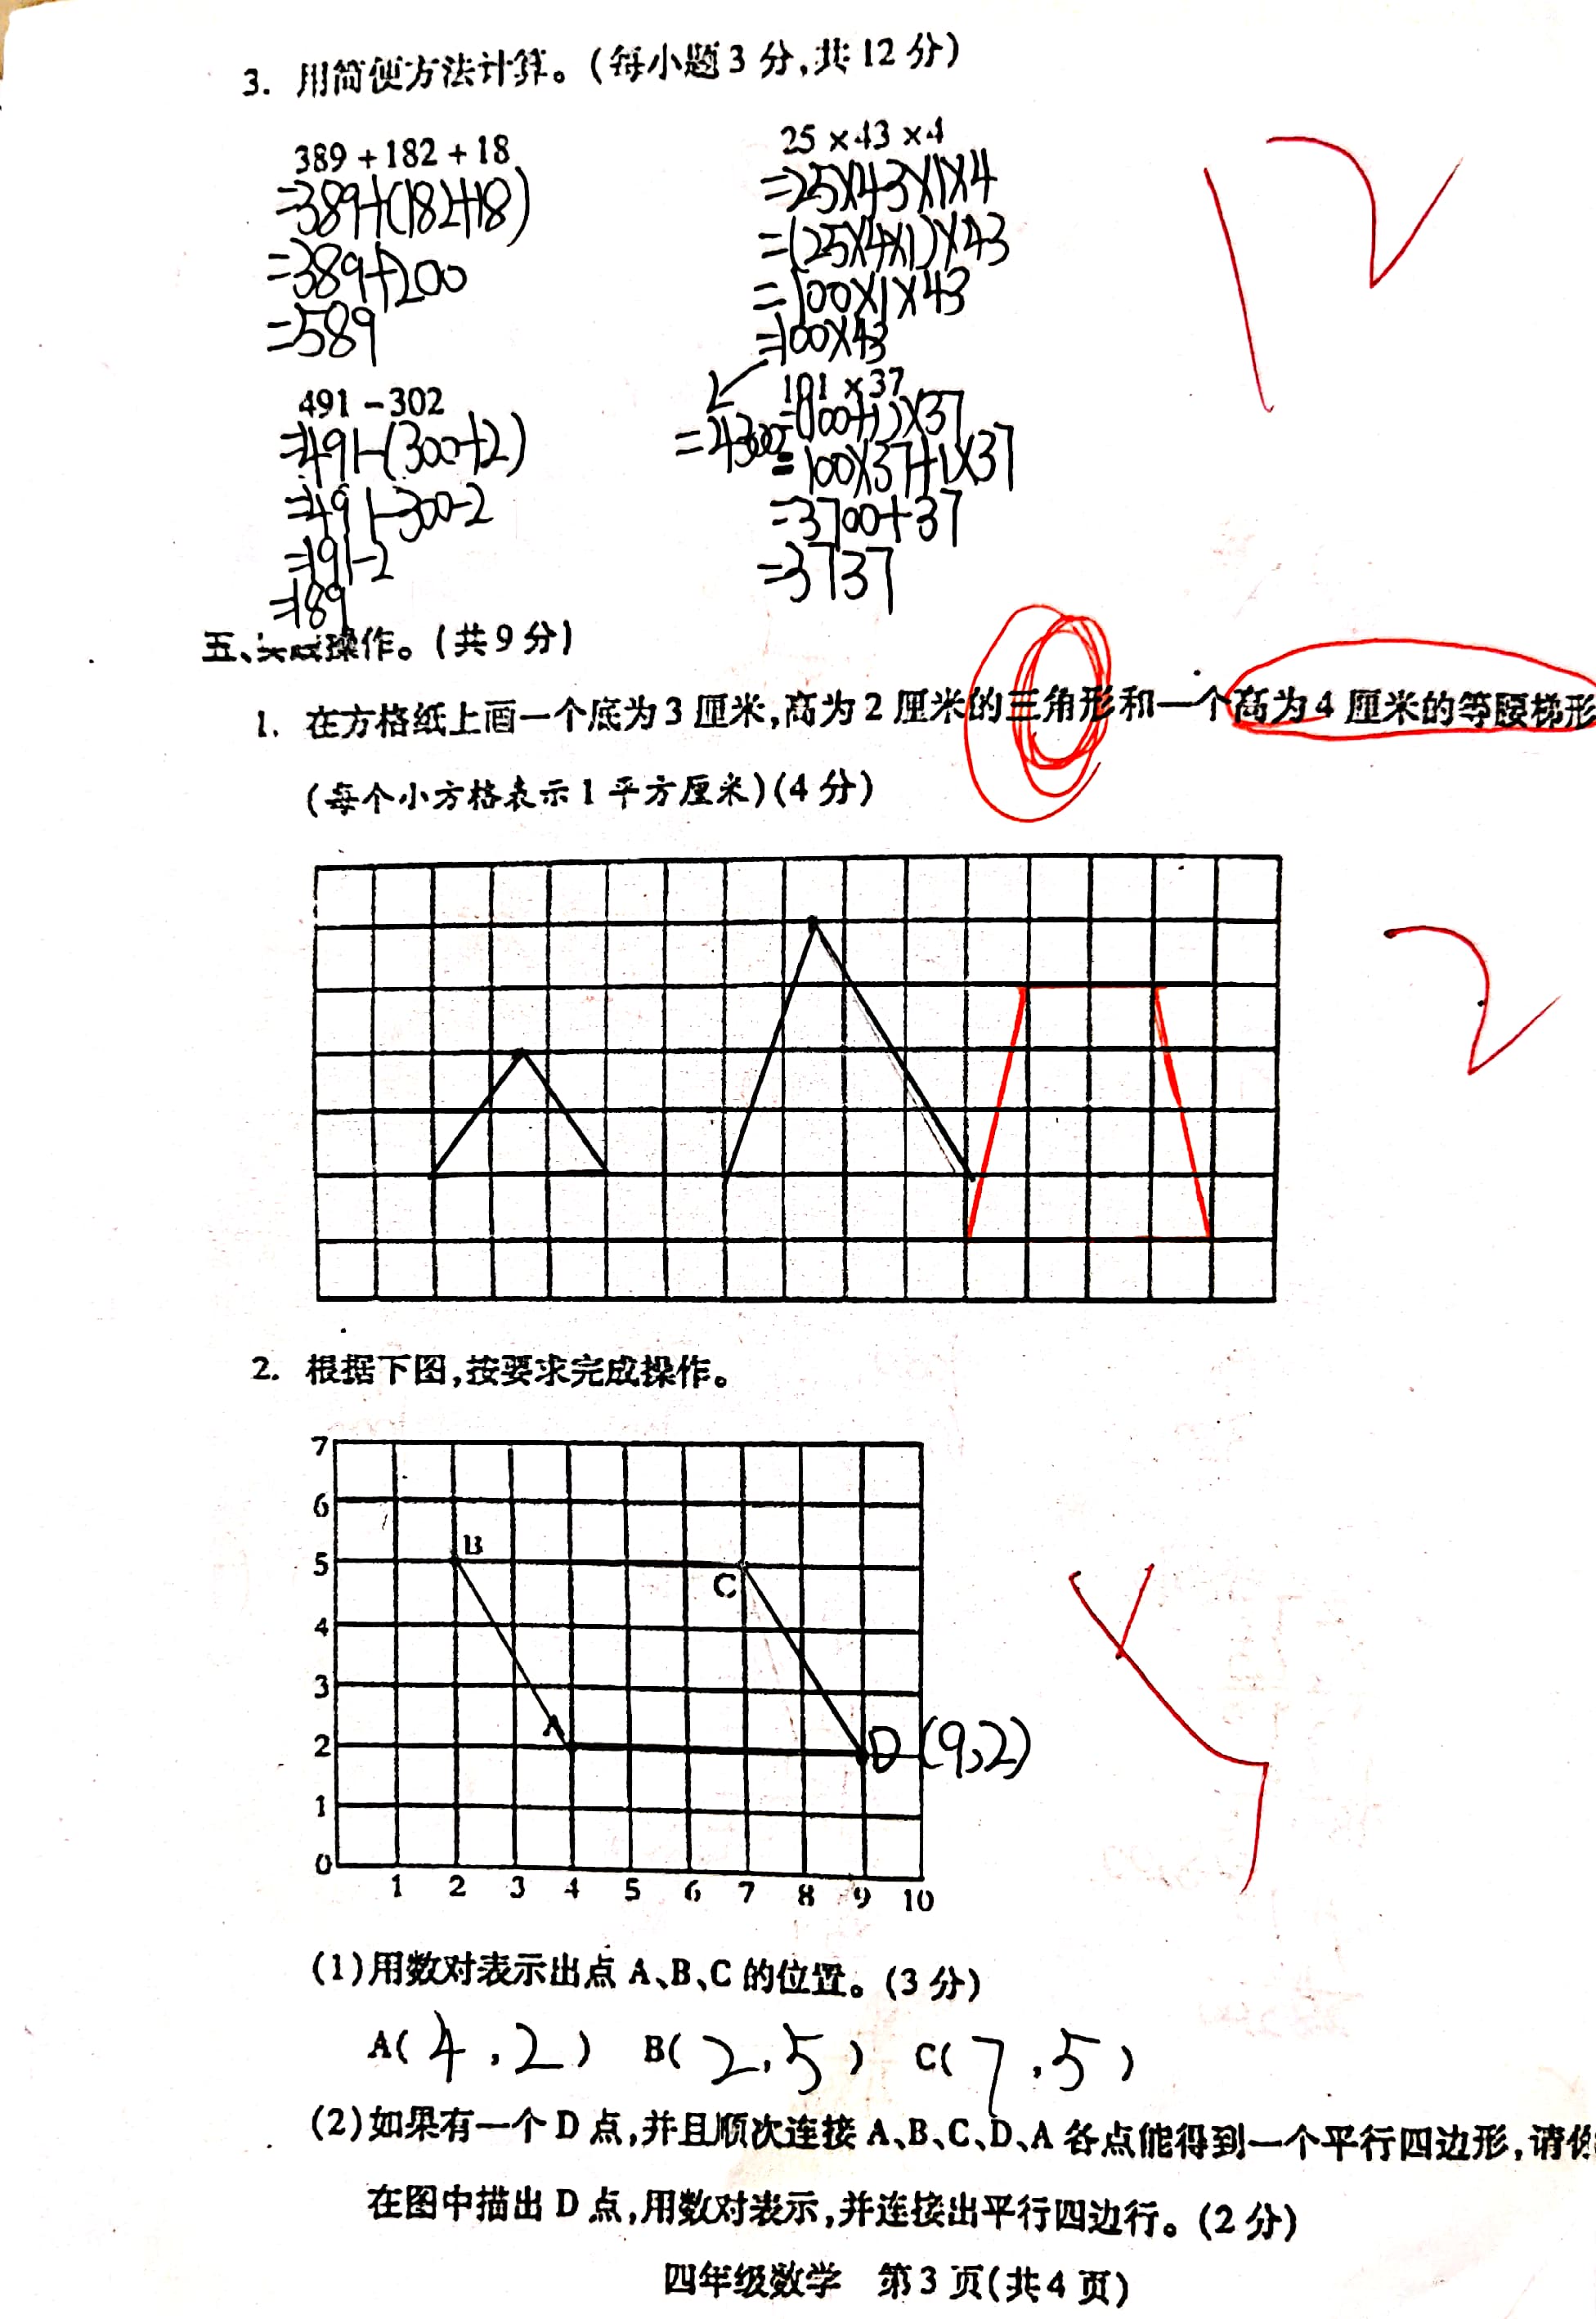 3. 用简便方法计算。(每小题3分,共12分)
389+182+18
=389+(182+18)
=389+200
=589
25×43×4
=25×43×1×4
=(25×4×1)×43
=100×1×43
=100×43
=4300
491-302
=491-(300+2)
=491-300-2
=191-2
=189
101×37
=(100+1)×37
=100×37+1×37
=3700+37
=3737
12
五、实践操作。(共9分)
1. 在方格纸上画一个底为3厘米,高为2厘米的三角形和一个高为4厘米的等腰梯形
(每个小方格表示1平方厘米)(4分)
2
2. 根据下图,按要求完成操作。
7
6
5
4
3
2
1
0
1 2 3 4 5 6 7 8 9 10
B
C
A
D (9,2)
(1)用数对表示出点A、B、C的位置。(3分)
A(4,2) B(2,5) C(7,5)
(2)如果有一个D点,并且顺次连接A、B、C、D、A各点能得到一个平行四边形,请你
在图中描出D点,用数对表示,并连接出平行四边行。(2分)
四年级数学 第3页(共4页)